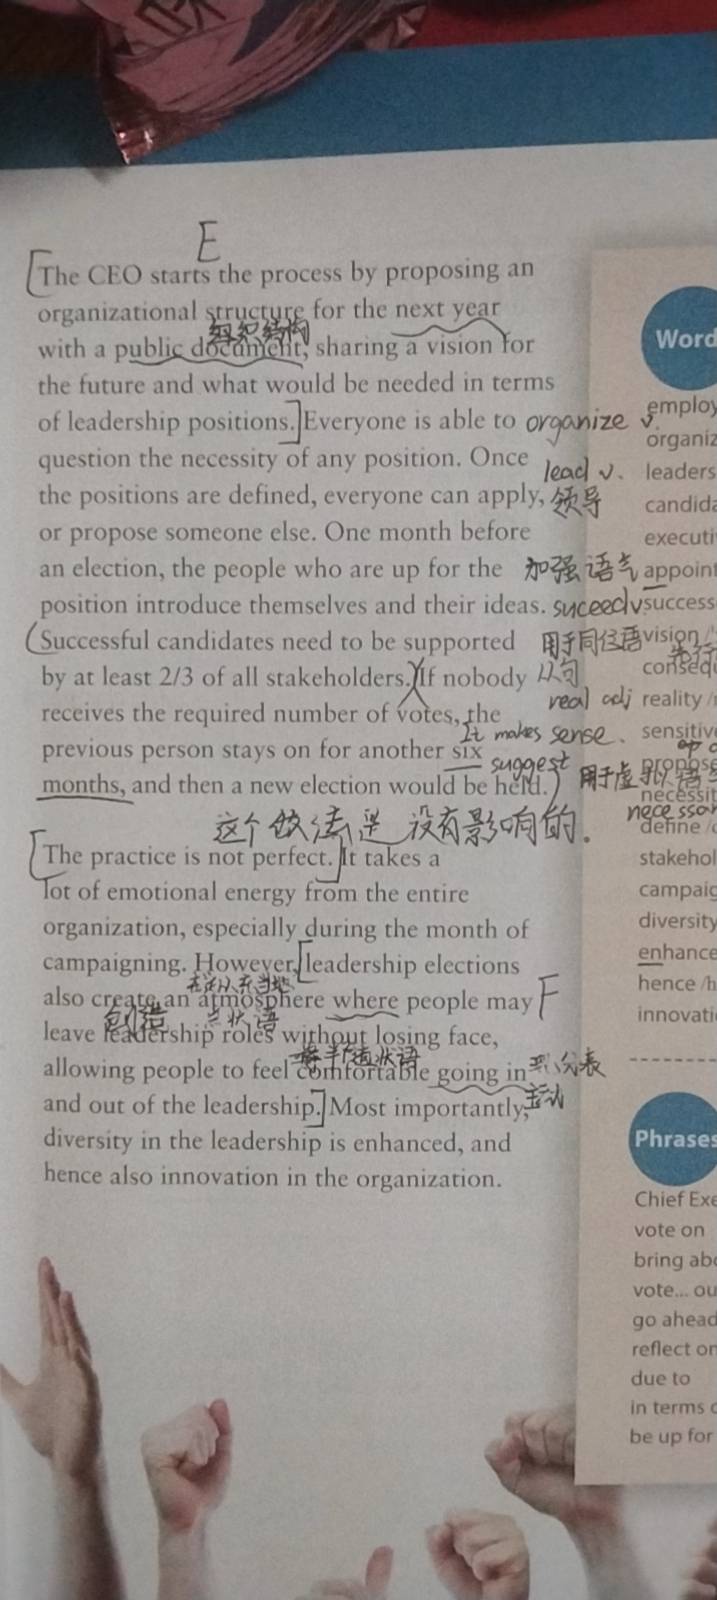 E
The CEO starts the process by proposing an
organizational structure for the next year
组织结构
with a public document, sharing a vision for
the future and what would be needed in terms
of leadership positions. Everyone is able to organize v.
question the necessity of any position. Once lead v.
the positions are defined, everyone can apply, 领导
or propose someone else. One month before
an election, the people who are up for the 加强语气
position introduce themselves and their ideas. suceed v.
Successful candidates need to be supported 用于同位语
by at least 2/3 of all stakeholders. If nobody 从句
real adj
receives the required number of votes, the
It makes sense.
previous person stays on for another six suggest
months, and then a new election would be held. 用于虚拟语
这个做法是没有影响的.
The practice is not perfect. It takes a
lot of emotional energy from the entire
organization, especially during the month of
campaigning. However, leadership elections
also create an atmosphere where people may F
创造 点状语
leave leadership roles without losing face,
状语
allowing people to feel comfortable going in
and out of the leadership. Most importantly, 主动
diversity in the leadership is enhanced, and
hence also innovation in the organization.
Word
employ
organiz
leaders
candida
executi
appoint
success
vision /
consequ
reality /
sensitiv
propose
necessit
necessar
define /
stakehol
campaig
diversity
enhance
hence /h
innovati
Phrases
Chief Exe
vote on
bring abo
vote... ou
go ahead
reflect on
due to
in terms o
be up for